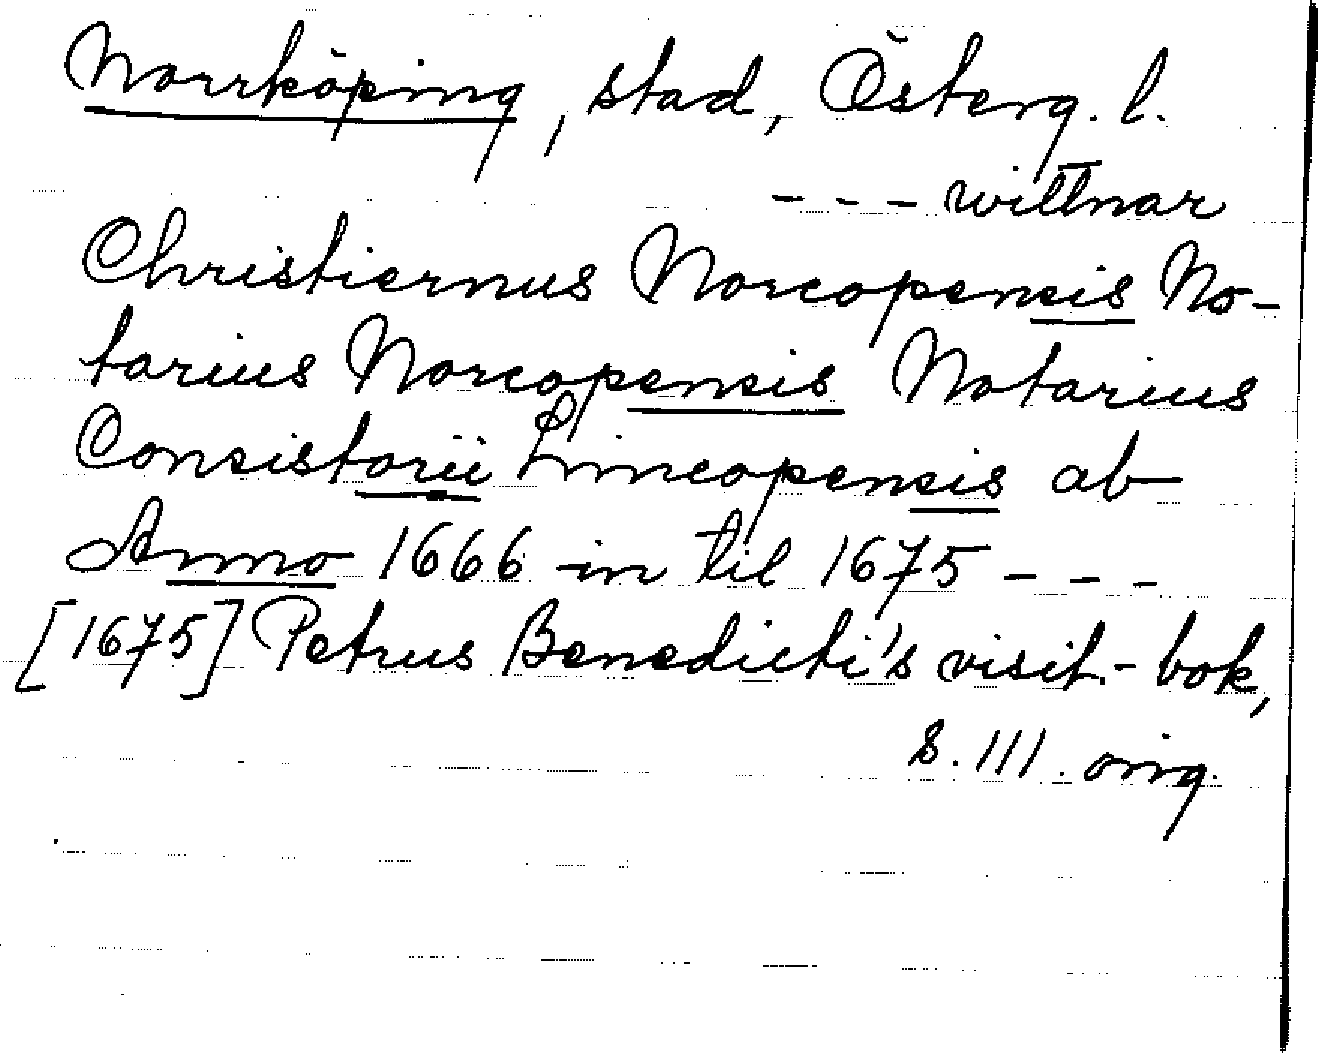 Norrköping, stad, Österg. l.
- - - wittnar
Christiernus Norcopensis No-
tarius Norcopensis Notarius
Consistorii Lincopensis ab
Anno 1666 in til 1675 - - -
[1675] Petrus Benedicti's visit.-bok,
s. 111. orig.